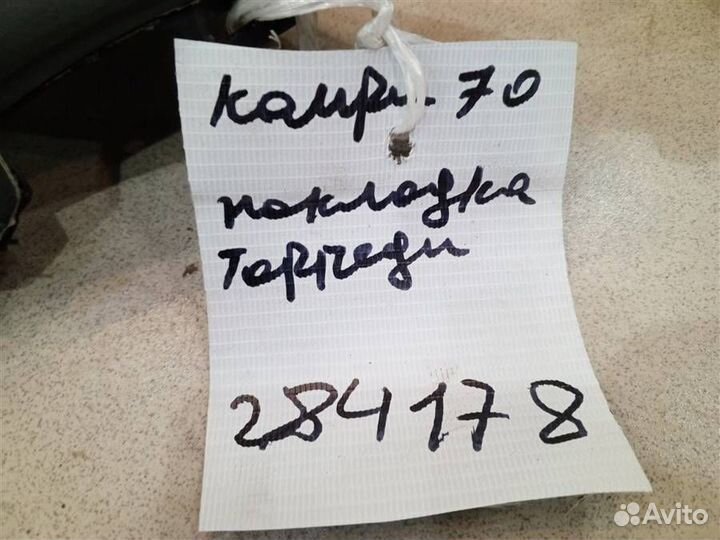 камри 70
накладка
Торпеди
284178
Avito